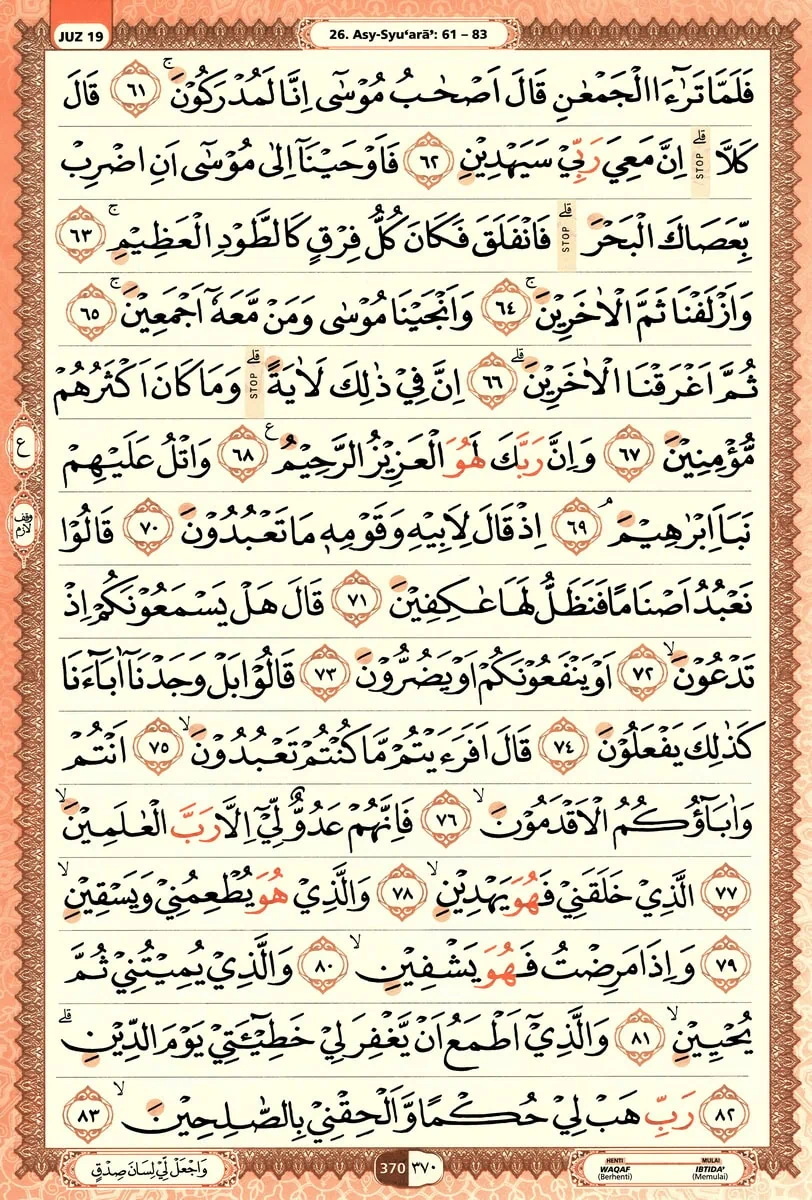 JUZ 19
26. Asy-Syu‘arā’: 61 – 83
فَلَمَّا تَرَاۤءَا الْجَمْعٰنِ قَالَ اَصْحٰبُ مُوْسٰٓى اِنَّا لَمُدْرَكُوْنَۚ ٦١ قَالَ
كَلَّاۗ STOP اِنَّ مَعِيَ رَبِّيْ سَيَهْدِيْنِ ٦٢ فَاَوْحَيْنَآ اِلٰى مُوْسٰٓى اَنِ اضْرِبْ
بِّعَصَاكَ الْبَحْرَۗ STOP فَانْفَلَقَ فَكَانَ كُلُّ فِرْقٍ كَالطَّوْدِ الْعَظِيْمِۚ ٦٣
وَاَزْلَفْنَا ثَمَّ الْاٰخَرِيْنَۚ ٦٤ وَاَنْجَيْنَا مُوْسٰى وَمَنْ مَّعَهٗٓ اَجْمَعِيْنَۚ ٦٥
ثُمَّ اَغْرَقْنَا الْاٰخَرِيْنَۗ ٦٦ اِنَّ فِيْ ذٰلِكَ لَاٰيَةًۗ STOP وَمَا كَانَ اَكْثَرُهُمْ
مُّؤْمِنِيْنَ ٦٧ وَاِنَّ رَبَّكَ لَهُوَ الْعَزِيْزُ الرَّحِيْمُ ࣖ ٦٨ وَاتْلُ عَلَيْهِمْ
نَبَاَ اِبْرٰهِيْمَۘ ٦٩ اِذْ قَالَ لِاَبِيْهِ وَقَوْمِهٖ مَا تَعْبُدُوْنَ ٧٠ قَالُوْا
نَعْبُدُ اَصْنَامًا فَنَظَلُّ لَهَا عٰكِفِيْنَ ٧١ قَالَ هَلْ يَسْمَعُوْنَكُمْ اِذْ
تَدْعُوْنَۙ ٧٢ اَوْ يَنْفَعُوْنَكُمْ اَوْ يَضُرُّوْنَ ٧٣ قَالُوْا بَلْ وَجَدْنَآ اٰبَاۤءَنَا
كَذٰلِكَ يَفْعَلُوْنَ ٧٤ قَالَ اَفَرَءَيْتُمْ مَّا كُنْتُمْ تَعْبُدُوْنَۙ ٧٥ اَنْتُمْ
وَاٰبَاۤؤُكُمُ الْاَقْدَمُوْنَۙ ٧٦ فَاِنَّهُمْ عَدُوٌّ لِّيْٓ اِلَّا رَبَّ الْعٰلَمِيْنَۙ
٧٧ الَّذِيْ خَلَقَنِيْ فَهُوَ يَهْدِيْنِۙ ٧٨ وَالَّذِيْ هُوَ يُطْعِمُنِيْ وَيَسْقِيْنِۙ
٧٩ وَاِذَا مَرِضْتُ فَهُوَ يَشْفِيْنِۙ ٨٠ وَالَّذِيْ يُمِيْتُنِيْ ثُمَّ
يُحْيِيْنِۙ ٨١ وَالَّذِيْٓ اَطْمَعُ اَنْ يَّغْفِرَ لِيْ خَطِيْۤـَٔتِيْ يَوْمَ الدِّيْنِۗ
٨٢ رَبِّ هَبْ لِيْ حُكْمًا وَّاَلْحِقْنِيْ بِالصّٰلِحِيْنَۙ ٨٣
ع
وقف لازم
وَاجْعَلْ لِّيْ لِسَانَ صِدْقٍ
370 ٣٧٠
HENTI WAQAF (Berhenti)
MULAI IBTIDA’ (Memulai)